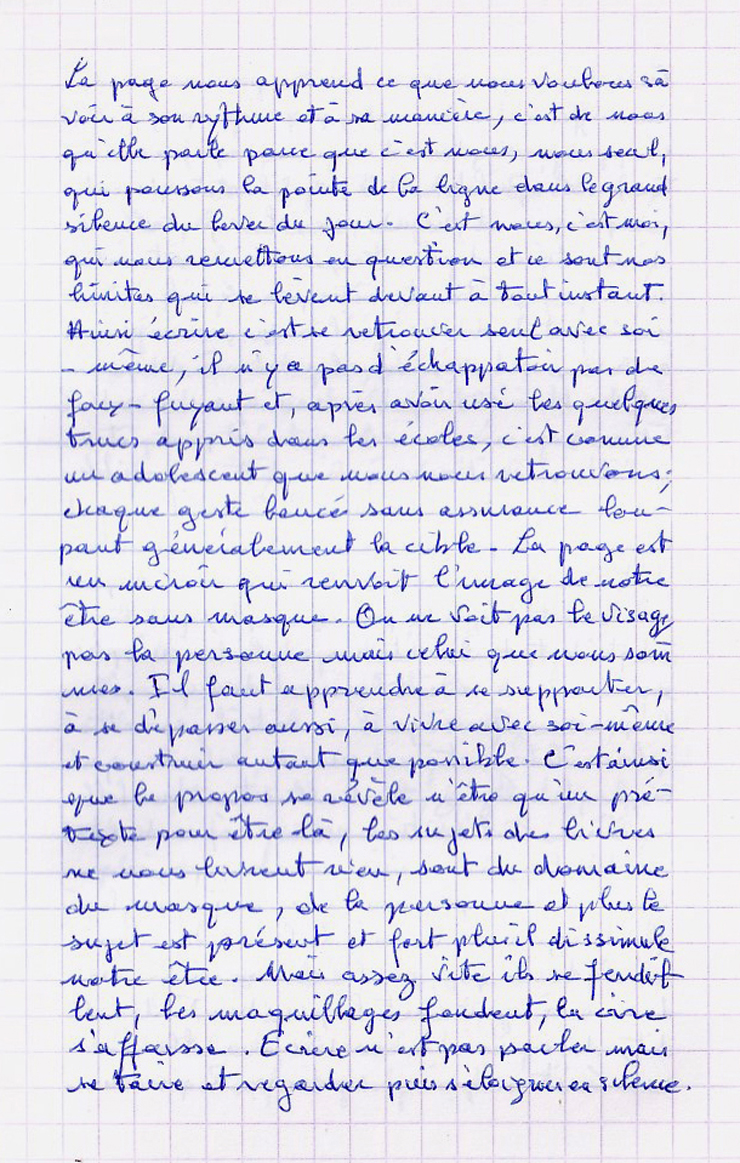 La page nous apprend ce que nous voulons sa
voir à son rythme et à sa manière, c'est de nous
qu'elle parle parce que c'est nous, nous seul,
qui poussons la pointe de la ligne dans le grand
silence du lever du jour. C'est nous, c'est moi,
qui nous remettons en question et ce sont nos
limites qui se lèvent devant à tout instant.
Ainsi écrire c'est se retrouver seul avec soi
-même, il n'y a pas d'échappatoir pas de
faux-fuyant et, après avoir usé les quelques
trucs appris dans les écoles, c'est comme
un adolescent que nous nous retrouvons,
chaque geste lancé sans assurance lou-
pant généralement la cible. La page est
un miroir qui renvoit l'image de notre
être sans masque. On ne voit pas le visage
pas la personne mais celui que nous som
mes. Il faut apprendre à se supporter,
à se dépasser aussi, à vivre avec soi-même
et construire autant que possible. C'est ainsi
que le propos se révèle n'être qu'un pré-
texte pour être là, les sujets des livres
ne nous livrent rien, sont du domaine
du masque, de la personne et plus le
sujet est présent et fort plus il dissimule
notre être. Mais assez vite ils se fendil
lent, les maquillages fondent, la cire
s'affaisse. Ecrire n'est pas parler mais
se taire et regarder puis s'éloigner en silence.